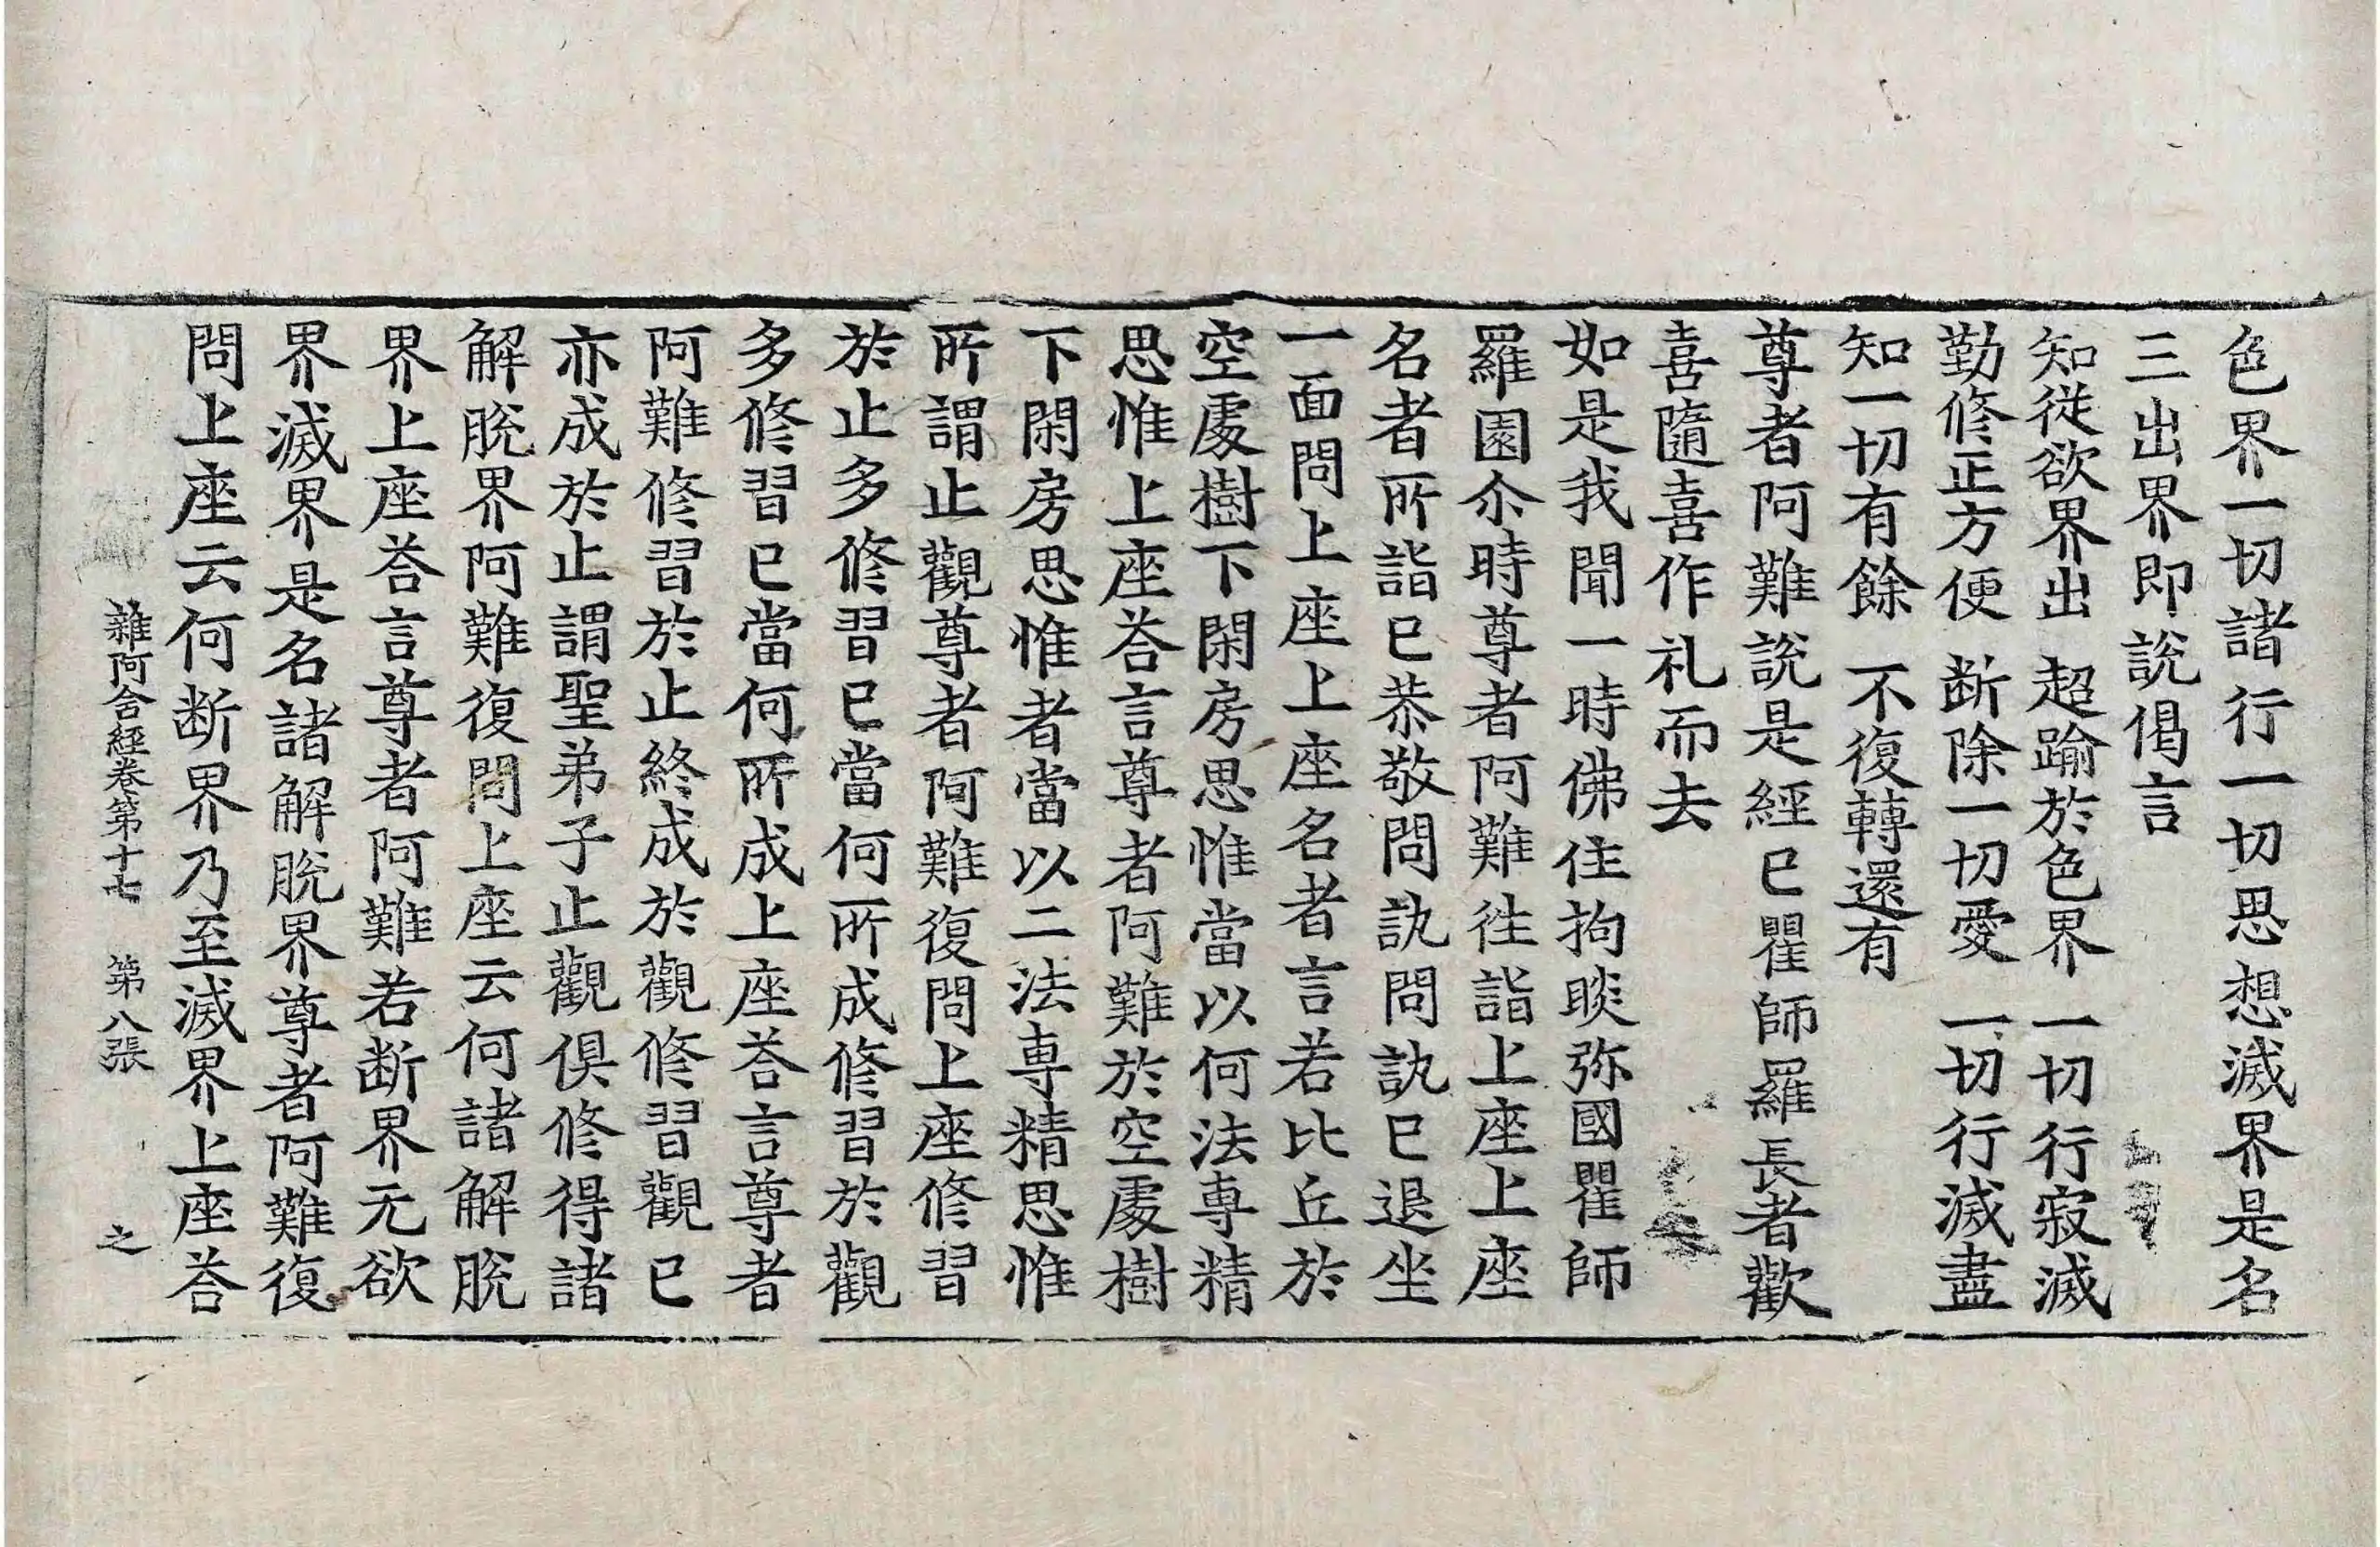 色界一切諸行一切思想滅界是名
三出界即說偈言
知從欲界出 超踰於色界 一切行寂滅
勤修正方便 断除一切愛 一切行滅盡
知一切有餘 不復轉還有
尊者阿難說是經已瞿師羅長者歡
喜隨喜作礼而去
如是我聞一時佛住拘睒弥國瞿師
羅園尒時尊者阿難往詣上座上座
名者所詣已恭敬問訊問訊已退坐
一面問上座上座名者言若比丘於
空處樹下閑房思惟當以何法專精
思惟上座荅言尊者阿難於空處樹
下閑房思惟者當以二法專精思惟
所謂止觀尊者阿難復問上座修習
於止多修習已當何所成修習於觀
多修習已當何所成上座荅言尊者
阿難修習於止終成於觀修習觀已
亦成於止謂聖弟子止觀俱修得諸
解脫界阿難復問上座云何諸解脫
界上座荅言尊者阿難若断界无欲
界滅界是名諸解脫界尊者阿難復
問上座云何断界乃至滅界上座荅
雜阿含經卷第十七 第八張 之